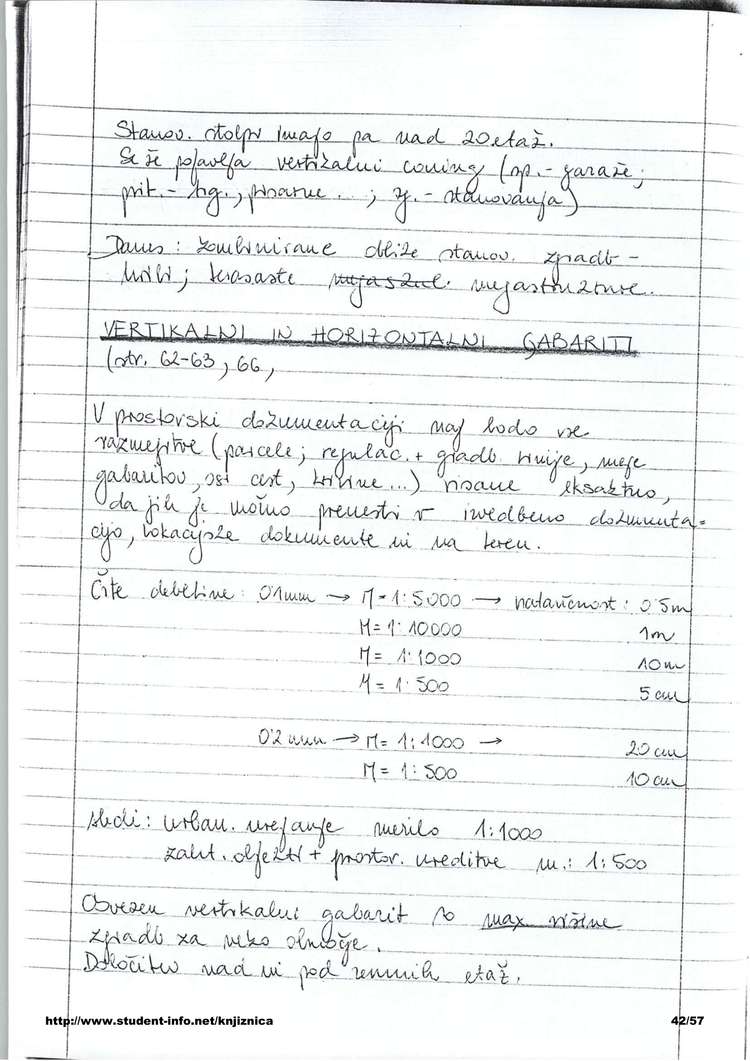 Stanov. stolpi imajo pa nad 20 etaž.
Se že pojavlja vertikalni coning (np.- garaže;
prit.- trg., pisarne...; zg.- stanovanja)
Danes: kombinirane oblike stanov. zgradb -
hribi; terasaste megastrukture.
VERTIKALNI IN HORIZONTALNI GABARITI
(str. 62-63, 66,
V prostorski dokumentaciji naj bodo vse
razmejitve (parcele; regulac. + gradb. linije, meje
gabaritov, osi cest, krivine...) risane eksaktno,
da jih je možno prenesti v izvedbeno dokumenta=
cijo, lokacijske dokumente in na teren.
Črte debeline: 0'1mm → M=1:5000 → natančnost: 0'5m
M=1:10000 1m
M= 1:1000 10m
M= 1:500 5 cm
0'2 mm → M= 1:1000 → 20 cm
M= 1:500 10 cm
sledi: urban. urejanje merilo 1:1000
zaht. objekti + prostor. ureditve m.: 1:500
Obvezen vertikalni gabarit so max višine
zgradb za neko območje.
Določitev nad in pod zemnih etaž.
http://www.student-info.net/knjiznica 42/57